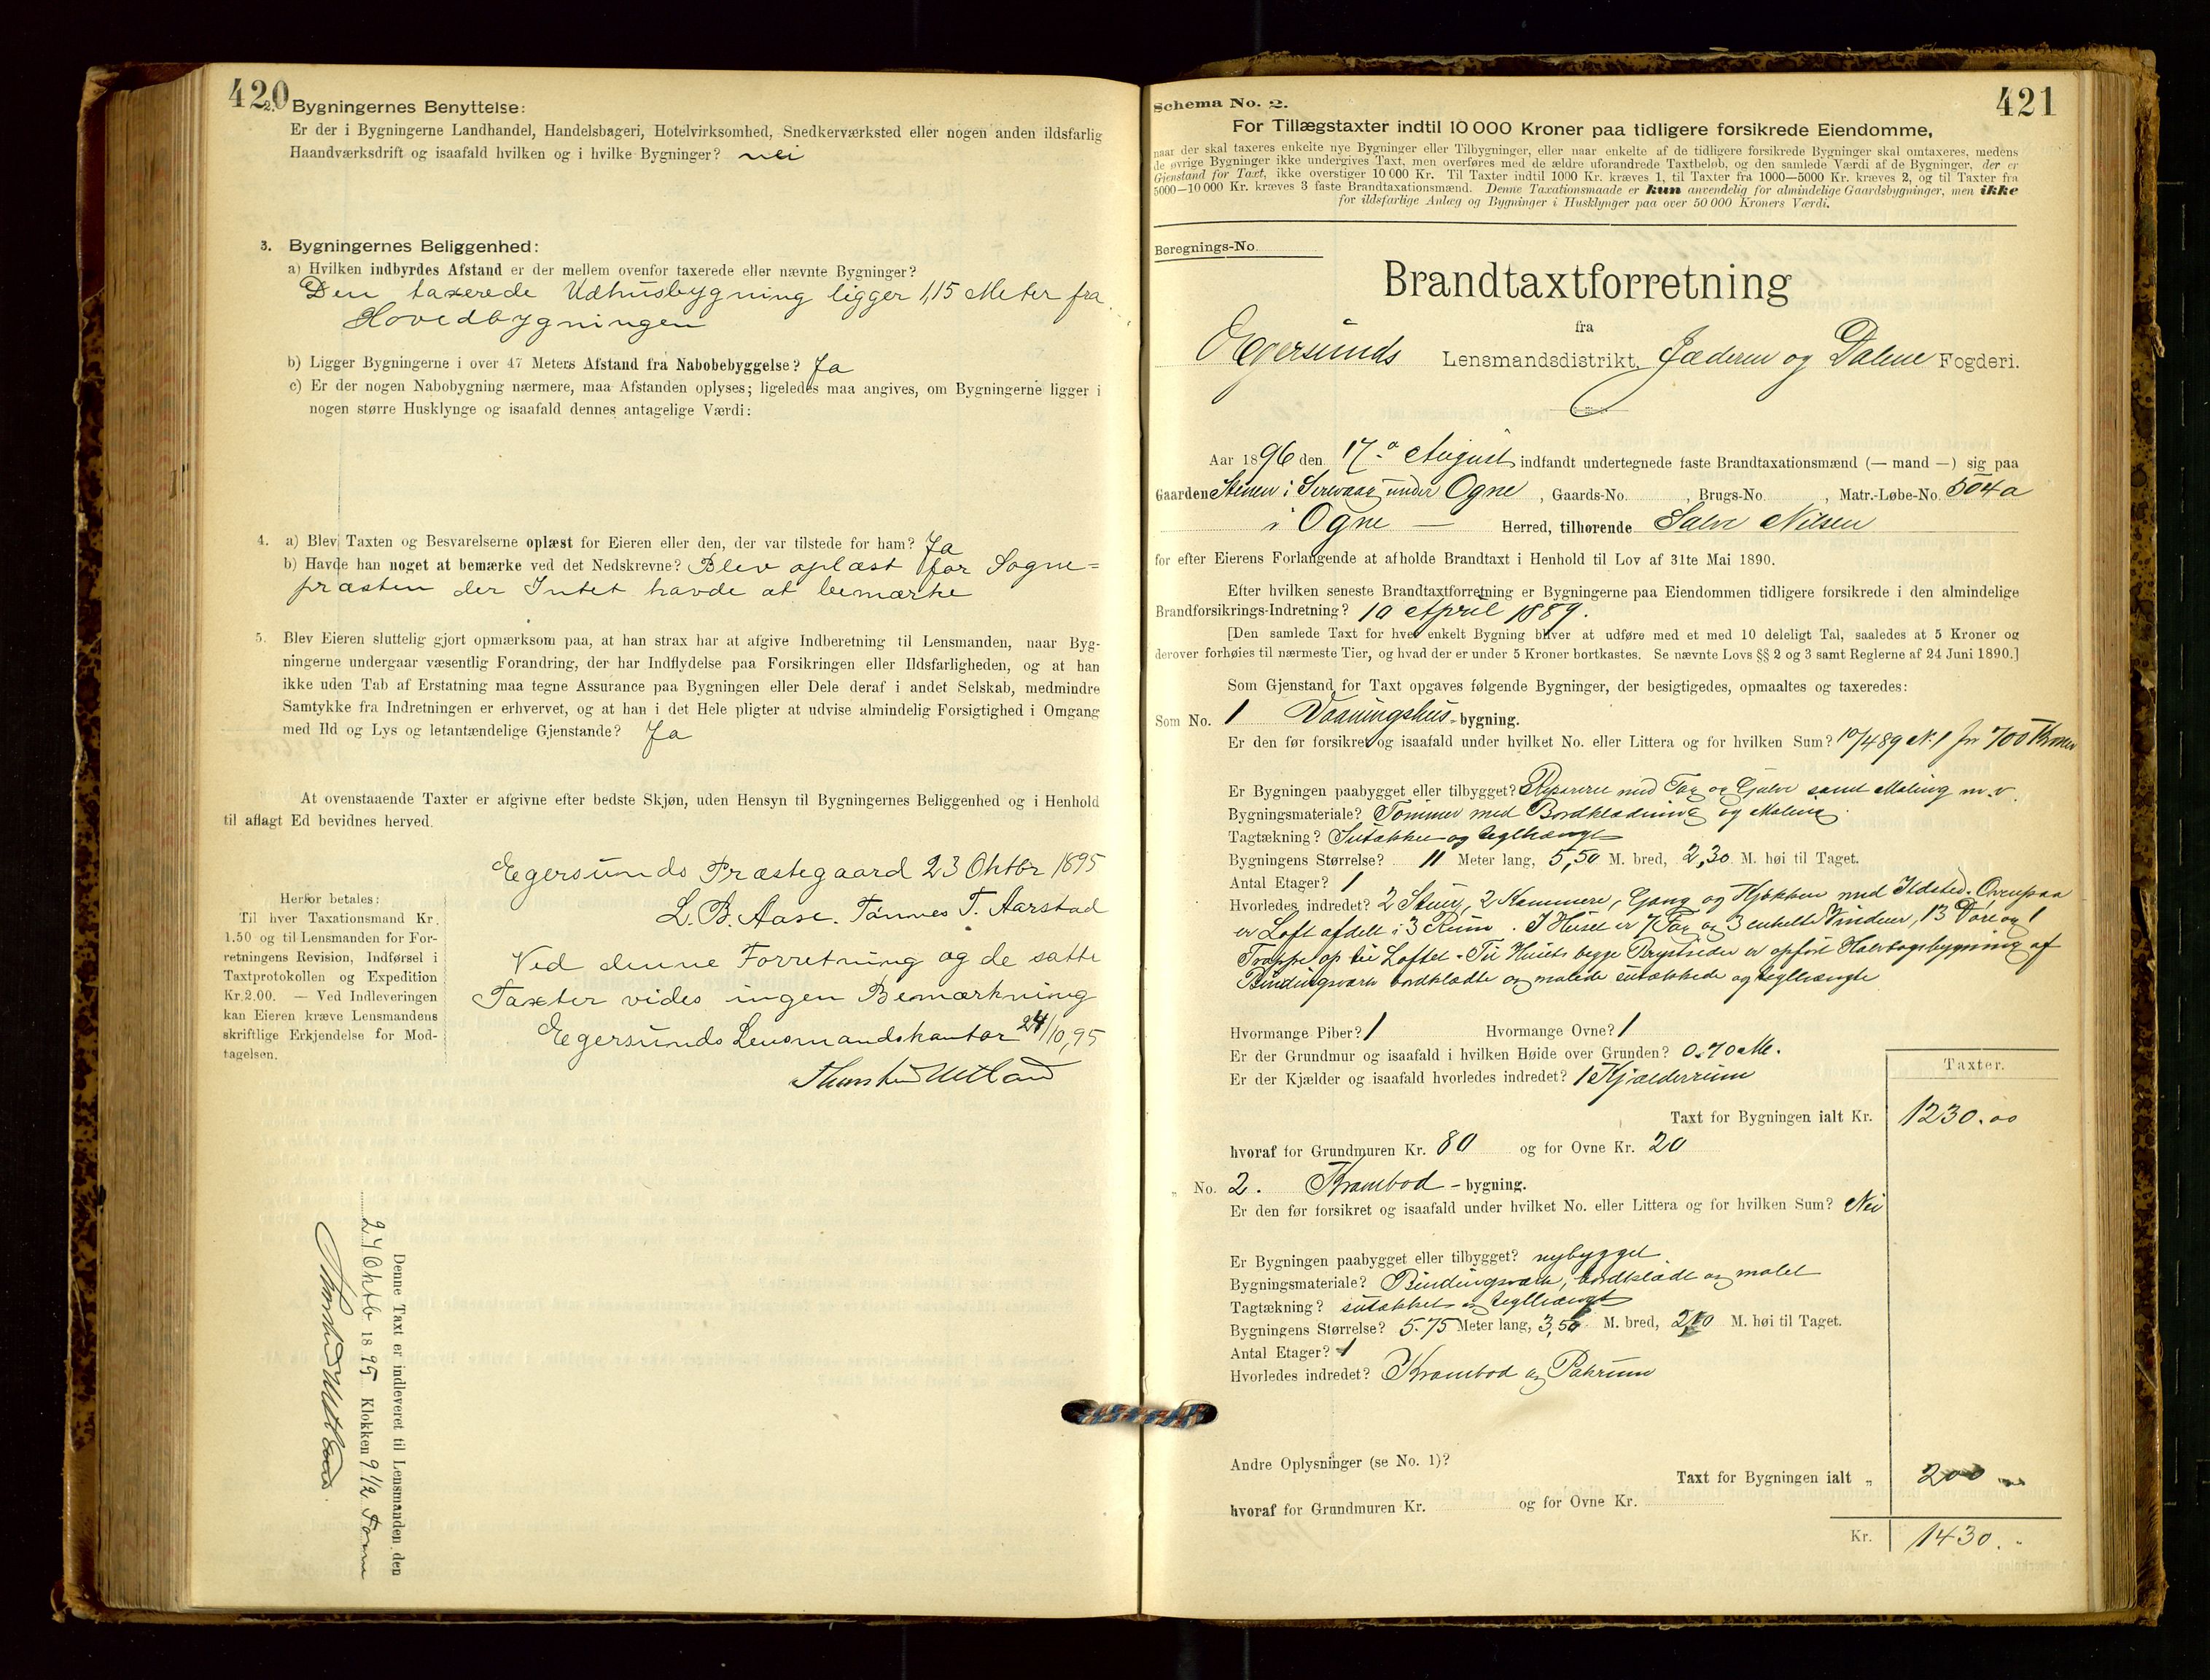 420
2. Bygningernes Benyttelse:
Er der i Bygningerne Landhandel, Handelsbageri, Hotelvirksomhed, Snedkerværksted eller nogen anden ildsfarlig
Haandværksdrift og isaafald hvilken og i hvilke Bygninger? nei
3. Bygningernes Beliggenhed:
a) Hvilken indbyrdes Afstand er der mellem ovenfor taxerede eller nævnte Bygninger?
Den taxerede Udhusbygning ligger 1,15 Meter fra
Hovedbygningen
b) Ligger Bygningerne i over 47 Meters Afstand fra Nabobebyggelse? Ja
c) Er der nogen Nabobygning nærmere, maa Afstanden oplyses; ligeledes maa angives, om Bygningerne ligger i
nogen større Husklynge og isaafald dennes antagelige Værdi:
4. a) Blev Taxten og Besvarelserne oplæst for Eieren eller den, der var tilstede for ham? Ja
b) Havde han noget at bemærke ved det Nedskrevne? Blev oplæst for Sogne=
præsten der Intet havde at bemærke
5. Blev Eieren sluttelig gjort opmærksom paa, at han strax har at afgive Indberetning til Lensmanden, naar Byg-
ningerne undergaar væsentlig Forandring, der har Indflydelse paa Forsikringen eller Ildsfarligheden, og at han
ikke uden Tab af Erstatning maa tegne Assurance paa Bygningen eller Dele deraf i andet Selskab, medmindre
Samtykke fra Indretningen er erhvervet, og at han i det Hele pligter at udvise almindelig Forsigtighed i Omgang
med Ild og Lys og letantændelige Gjenstande? Ja
At ovenstaaende Taxter er afgivne efter bedste Skjøn, uden Hensyn til Bygningernes Beliggenhed og i Henhold
til aflagt Ed bevidnes herved.
Egersunds Præstegaard 23 Oktbr 1895
L. B. Aase. Tønnes T. Aarstad
Ved denne Forretning og de satte
Taxter vides ingen Bemærkning
Egersunds Lensmandskontor 24/10,95
Herfor betales:
Til hver Taxationsmand Kr.
1.50 og til Lensmanden for For-
retningens Revision, Indførsel i
Taxtprotokollen og Expedition
Kr. 2.00. — Ved Indleveringen
kan Eieren kræve Lensmandens
skriftlige Erkjendelse for Mod-
tagelsen.
Denne Taxt er indleveret til Lensmanden den
24 Oktb 1895 Klokken 9 1/2 Form
421
Schema No. 2.
For Tillægstaxter indtil 10 000 Kroner paa tidligere forsikrede Eiendomme,
naar der skal taxeres enkelte nye Bygninger eller Tilbygninger, eller naar enkelte af de tidligere forsikrede Bygninger skal omtaxeres, medens
de øvrige Bygninger ikke undergives Taxt, men overføres med de ældre uforandrede Taxtbeløb, og den samlede Værdi af de Bygninger, der er
Gjenstand for Taxt, ikke overstiger 10 000 Kr. Til Taxter indtil 1000 Kr. kræves 1, til Taxter fra 1000—5000 Kr. kræves 2, og til Taxter fra
5000—10 000 Kr. kræves 3 faste Brandtaxationsmænd. Denne Taxationsmaade er kun anvendelig for almindelige Gaardsbygninger, men ikke
for ildsfarlige Anlæg og Bygninger i Husklynger paa over 50 000 Kroners Værdi.
Beregnings-No.
Brandtaxtforretning
fra
Egersunds Lensmandsdistrikt, Jæderen og Dalene Fogderi.
Aar 1896 den 17de August indfandt undertegnede faste Brandtaxationsmænd (— mand —) sig paa
Gaarden Stenen i Sirevaag under Ogne, Gaards-No. , Brugs-No. , Matr.-Løbe-No. 504a
i Ogne — Herred, tilhørende Salve Nilsen
for efter Eierens Forlangende at afholde Brandtaxt i Henhold til Lov af 31te Mai 1890.
Efter hvilken seneste Brandtaxtforretning er Bygningerne paa Eiendommen tidligere forsikrede i den almindelige
Brandforsikrings-Indretning? 10 April 1889.
[Den samlede Taxt for hver enkelt Bygning bliver at udføre med et med 10 deleligt Tal, saaledes at 5 Kroner og
derover forhøies til nærmeste Tier, og hvad der er under 5 Kroner bortkastes. Se nævnte Lovs §§ 2 og 3 samt Reglerne af 24 Juni 1890.]
Som Gjenstand for Taxt opgaves følgende Bygninger, der besigtigedes, opmaaltes og taxeredes:
Som No. 1 Vaaningshus-bygning.
Er den før forsikret og isaafald under hvilket No. eller Littera og for hvilken Sum? 10/4 89 No 1 for 700 Kroner
Er Bygningen paabygget eller tilbygget? Repareret med Tag og Gulve samt Maling m. v.
Bygningsmateriale? Tømmer med Bordklædning og Maling
Tagtækning? Sutækket og teglhængt
Bygningens Størrelse? 11 Meter lang, 5,50 M. bred, 2,30 M. høi til Taget.
Antal Etager? 1
Hvorledes indredet? 2 Stuer, 2 Kammere, Gang og Kjøkken med Ildsted. Ovenpaa
er Loft afdelt i 3 Rum. I Huset er 7 Fag og 3 enkelte Vinduer, 13 Døre og 1
Trappe op til Loftet. Til Husets begge Brystsider er opført Halvtagsbygning af
Bindingsværk bordklædte og malede sutækkede og teglhængte
Hvormange Piber? 1 Hvormange Ovne? 1
Er der Grundmur og isaafald i hvilken Høide over Grunden? 0.70 M.
Er der Kjælder og isaafald hvorledes indredet? 1 Kjælderrum
Taxter.
Taxt for Bygningen ialt Kr. 1230.00
hvoraf for Grundmuren Kr. 80 og for Ovne Kr. 20
" No. 2. Krambod-bygning.
Er den før forsikret og isaafald under hvilket No. eller Littera og for hvilken Sum? Nei
Er Bygningen paabygget eller tilbygget? nybygget
Bygningsmateriale? Bindingsværk, bordklædt og malet
Tagtækning? sutækket og teglhængt
Bygningens Størrelse? 5.75 Meter lang, 3,50 M. bred, M. høi til Taget.
Antal Etager? 1
Hvorledes indredet? Krambod og Pakrum
Andre Oplysninger (se No. 1)?
Taxt for Bygningen ialt „ 200
hvoraf for Grundmuren Kr. og for Ovne Kr.
Kr. 1430. -